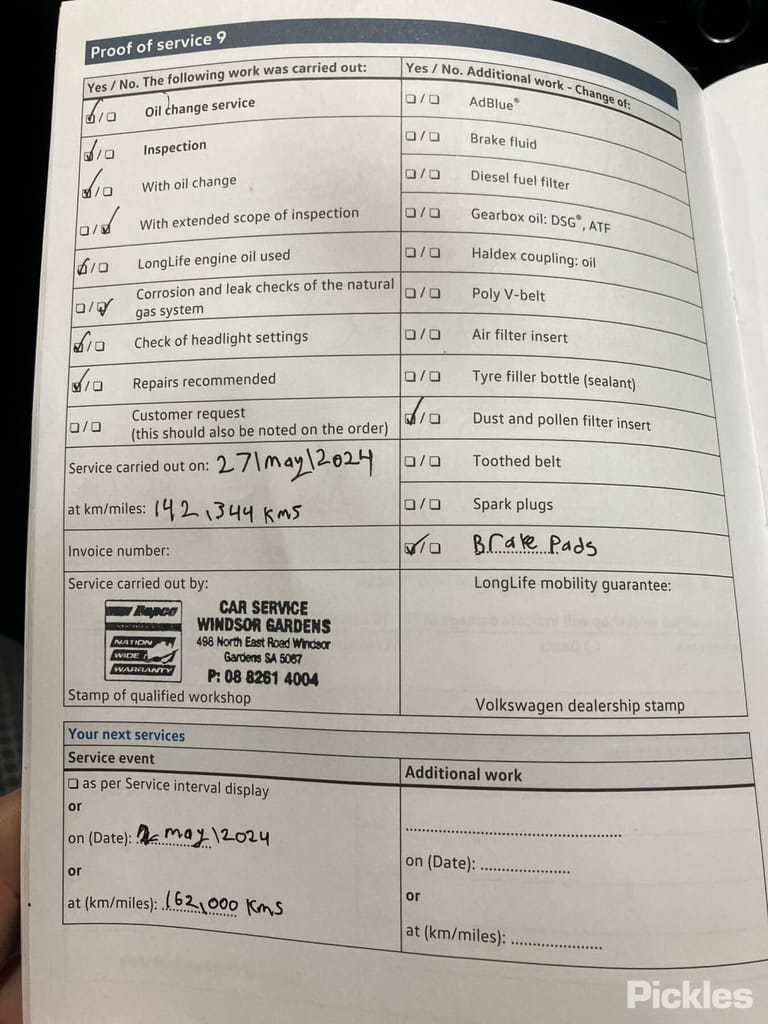 Proof of service 9
Yes / No. The following work was carried out:
☑/☐ Oil change service
☑/☐ Inspection
☑/☐ With oil change
☐/☑ With extended scope of inspection
☑/☐ LongLife engine oil used
☐/☑ Corrosion and leak checks of the natural
gas system
☑/☐ Check of headlight settings
☑/☐ Repairs recommended
☐/☐ Customer request
(this should also be noted on the order)
Service carried out on: 27\may\2024
at km/miles: 142,344 kms
Invoice number:
Service carried out by:
Repco
NATION
WIDE
WARRANTY
CAR SERVICE
WINDSOR GARDENS
498 North East Road Windsor
Gardens SA 5087
P: 08 8261 4004
Stamp of qualified workshop
Yes / No. Additional work - Change of:
☐/☐ AdBlue®
☐/☐ Brake fluid
☐/☐ Diesel fuel filter
☐/☐ Gearbox oil: DSG®, ATF
☐/☐ Haldex coupling: oil
☐/☐ Poly V-belt
☐/☐ Air filter insert
☐/☐ Tyre filler bottle (sealant)
☑/☐ Dust and pollen filter insert
☐/☐ Toothed belt
☐/☐ Spark plugs
☑/☐ Brake Pads
LongLife mobility guarantee:
Volkswagen dealership stamp
Your next services
Service event
☐ as per Service interval display
or
on (Date): may\2024
or
at (km/miles): 162,000 kms
Additional work
....................
on (Date): ....................
or
at (km/miles): ....................
Pickles